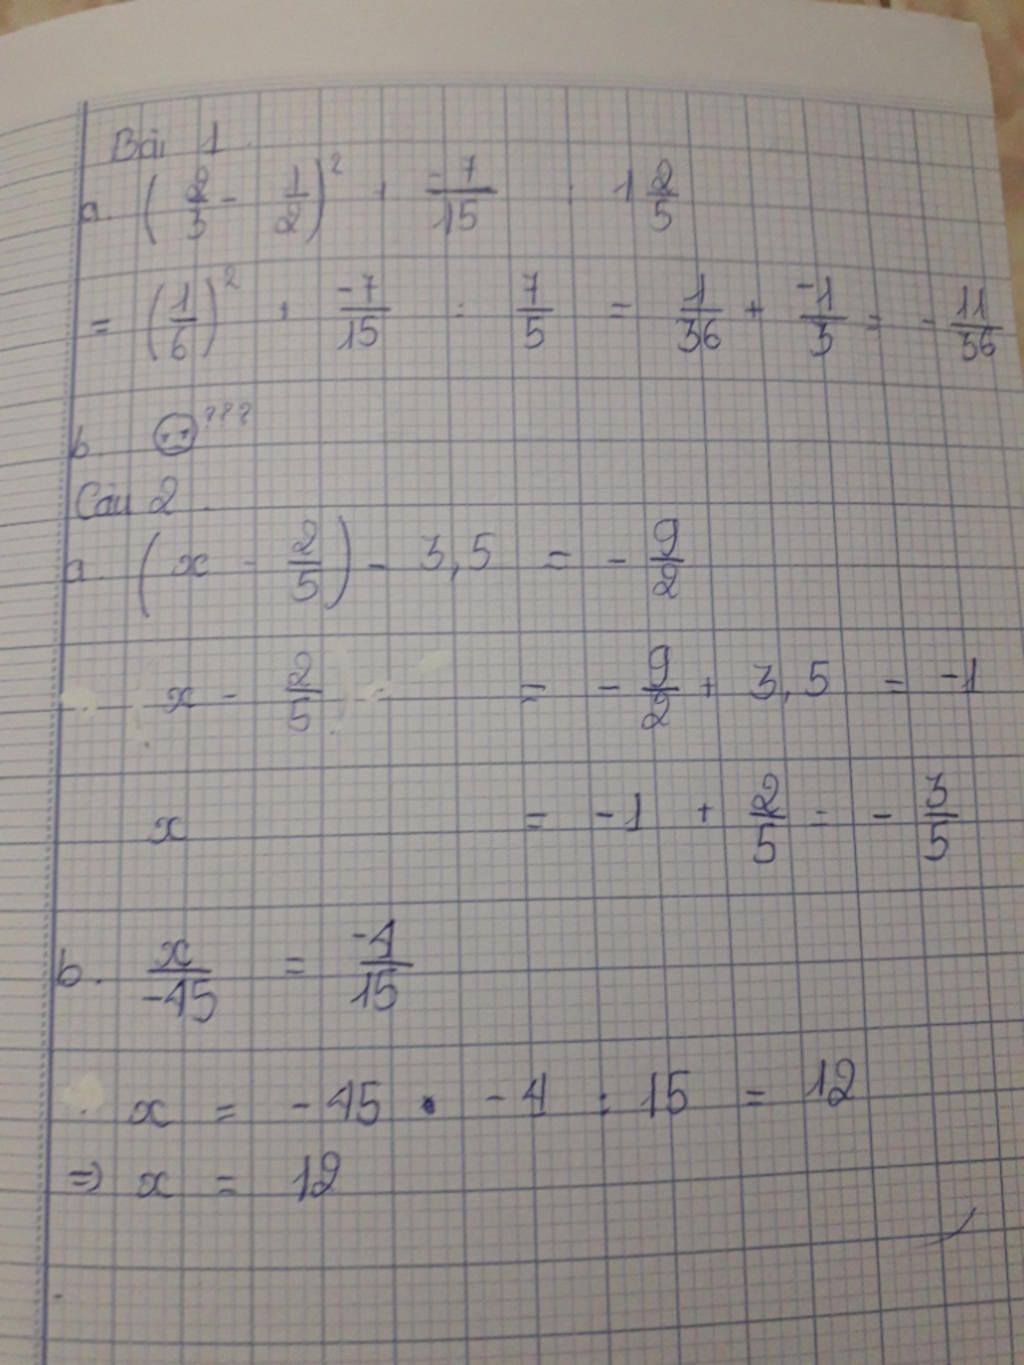 Bài 1
a. (2/3 - 1/2)² + -7/15 : 1 2/5
= (1/6)² + -7/15 : 7/5 = 1/36 + -1/3 = - 11/36
b. ???
Câu 2.
a. (x - 2/5) - 3,5 = - 9/2
x - 2/5 = - 9/2 + 3,5 = -1
x = -1 + 2/5 = - 3/5
b. x/-45 = -4/15
x = -45 . -4 : 15 = 12
=> x = 12